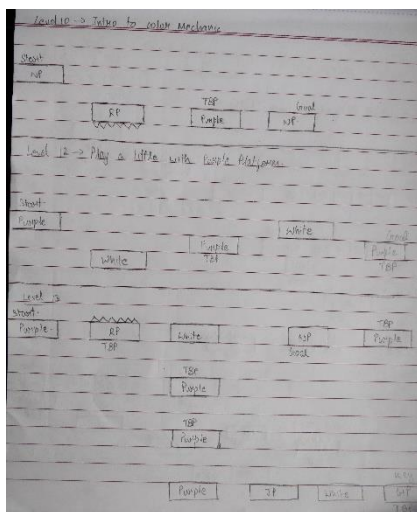 Level 10 → Intro to color Mechanic
Start
NP
RP
TBP
Purple
Goal
NP
Level 12 → Play a little with Purple Platforms
Start
Purple
White
Purple
TBP
White
Goal
Purple
TBP
Level
Start
Purple
RP
TBP
White
Goal
TBP
Purple
TBP
Purple
TBP
Purple
Purple
JP
White